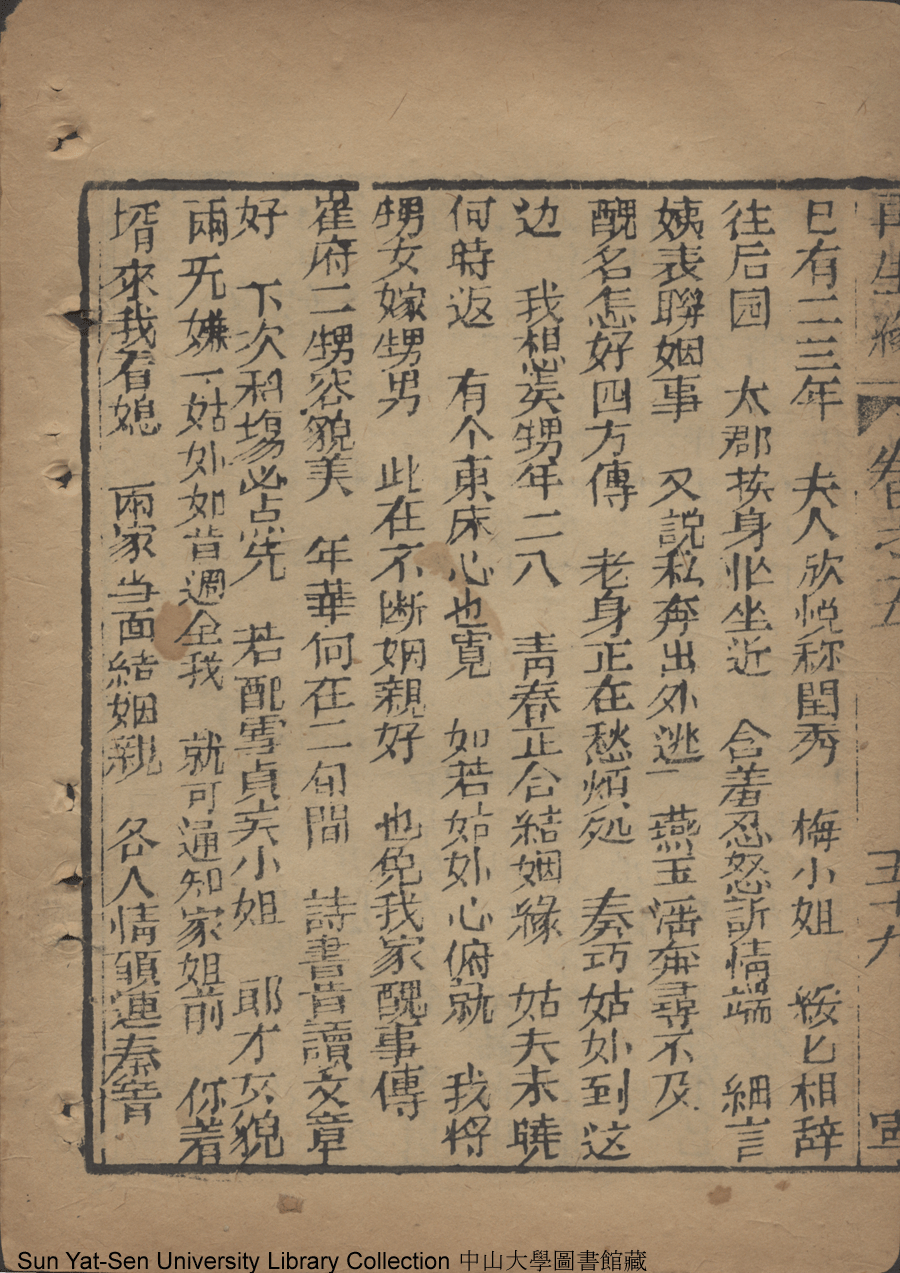 再生緣 卷之五 五十九
已有二三年 夫人欣悅称閨秀 梅小姐 綏匕相辞
往后园 太郡挨身坐近 含羞忍怒訴情端 細言
姨表聯姻事 又説私奔出外逃 燕玉潘奔尋不及
醜名怎好四方傳 老身正在愁煩処 奏巧姑妙到这
边 我想甥年二八 靑春正合結姻緣 姑夫未曉
何時返 有个東床心也寬 如若姑妙心俯就 我将
甥女嫁甥男 此在不断姻親好 也免我家醜事傳
崔府二甥容貌美 年華何在二旬間 詩書昔讀文章
好 下次科塲必点先 若配雪貞矦小姐 郎才女貌
兩旡嫌 姑妙如肯週全我 就可通知家姐前 你着
壻來我看媳 兩家当面結姻親 各人情願連秦晉
Sun Yat-Sen University Library Collection 中山大學圖書館藏